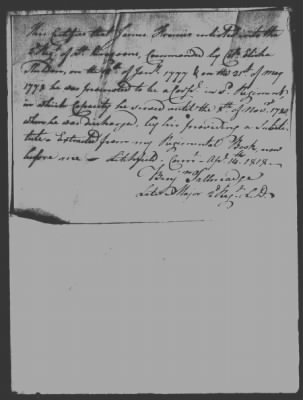 This Certifies that James Francis enlisted into the
2d Regt. of Lt. Dragoons, Commanded by Col. Elisha
Sheldon, on the of Jany. 1777 & on the 21st of May
1778 he was promoted to be a Corpl. in sd. Regiment
in which Capacity he served until the of Novr.
when he was discharged, by his providing a Substi-
tute - Extracted from my Regimental Book, now
before me - Litchfield, Connt. Apl. 14th 1818 -
Benjn. Tallmadge
Late Major 2d Regt. L.D.